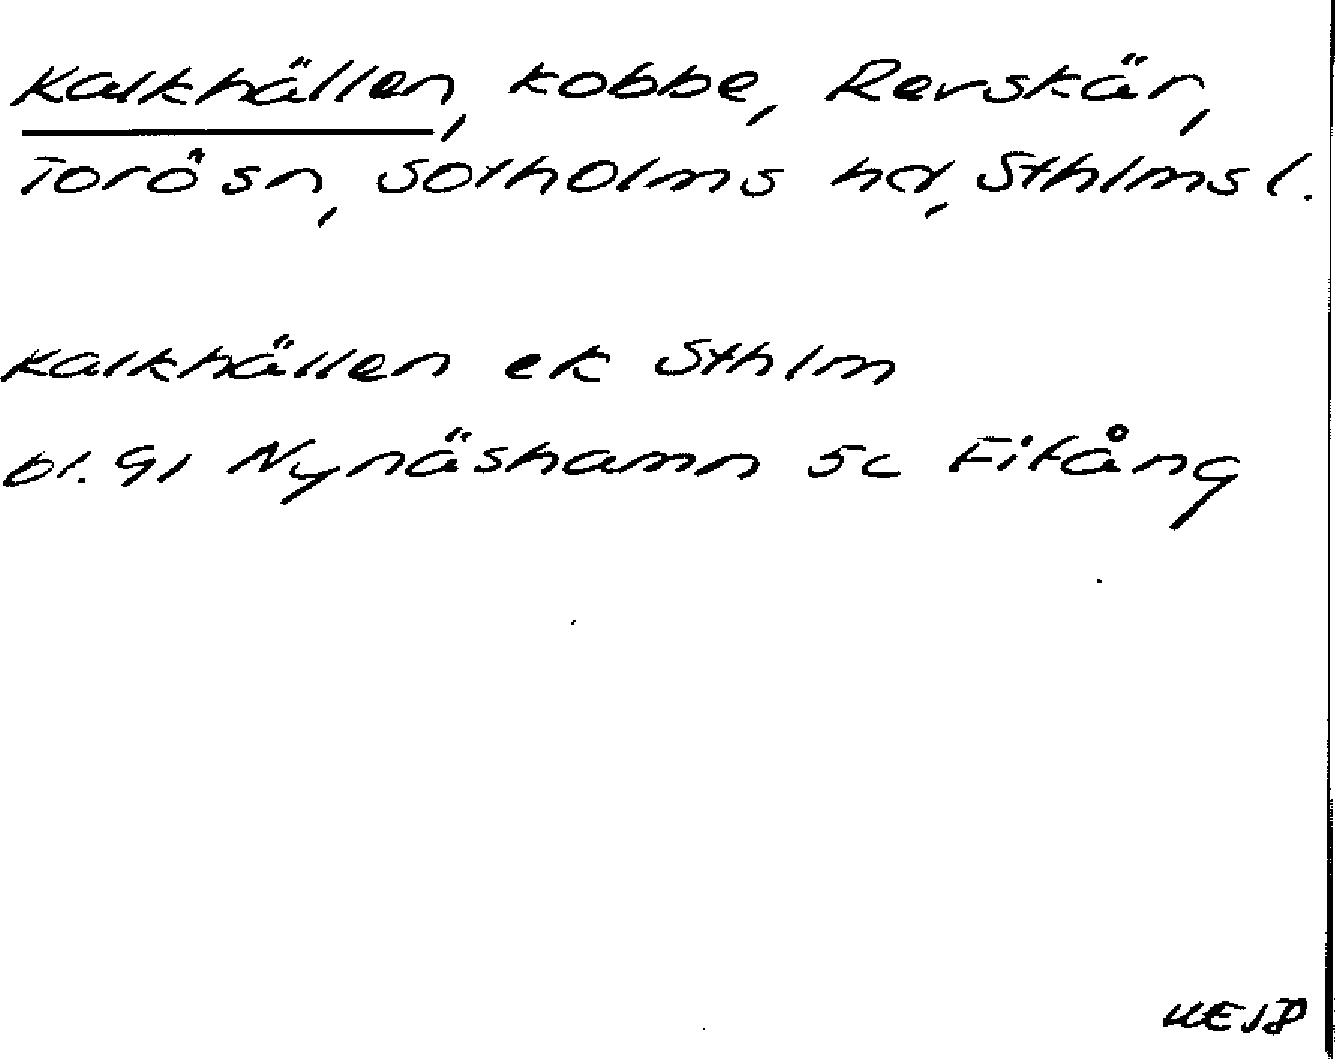 Kalkhällen, kobbe, Revskär,
Torö sn, Sotholms hd, Sthlms l.
Kalkhällen ek Sthlm
bl. 91 Nynäshamn 5c Fifång